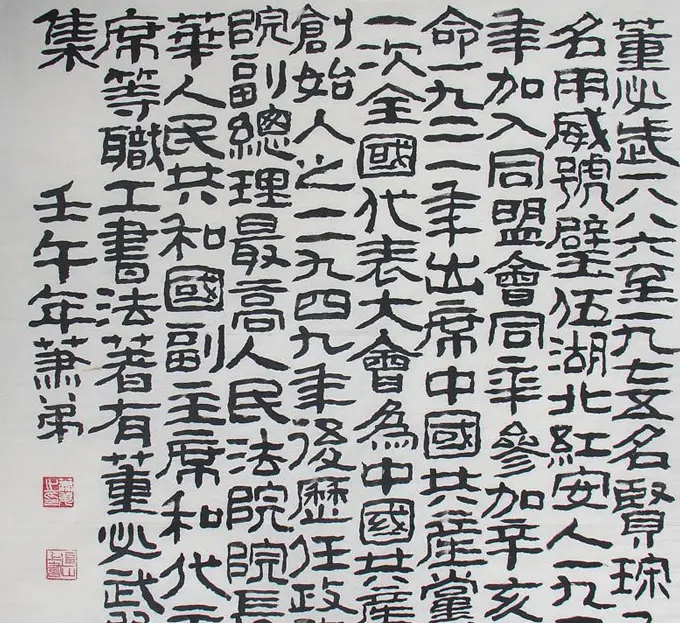 董必武一八八六至一九七五名賢琮
名用威號壁伍湖北紅安人一九
年加入同盟會同年參加辛亥
命一九二一年出席中國共產黨
一次全國代表大會為中國共產
創始人之一一九四九年後歷任政
院副總理最高人民法院院長
華人民共和國副主席和代
席等職工書法著有董必武
集
壬午年蕭弟